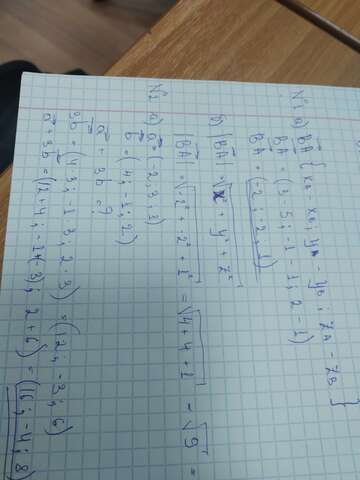 N1 a) BA { x_A - x_B; y_A - y_B; z_A - z_B }
BA = (3 - 5; -1 - 1; 2 - 1)
BA = (-2; -2; 1)
б) |BA| = √x² + y² + z²
|BA| = √2² + -2² + 1² = √4 + 4 + 1 = √9 =
N2 a) a (-2; 3; 1)
b = (4; -1; 2)
a + 3b = ?
3b = (4·3; -1·3; 2·3) = (12; -3; 6)
a + 3b = (12+4; -1+(-3); 2+6) = (16; -4; 8)